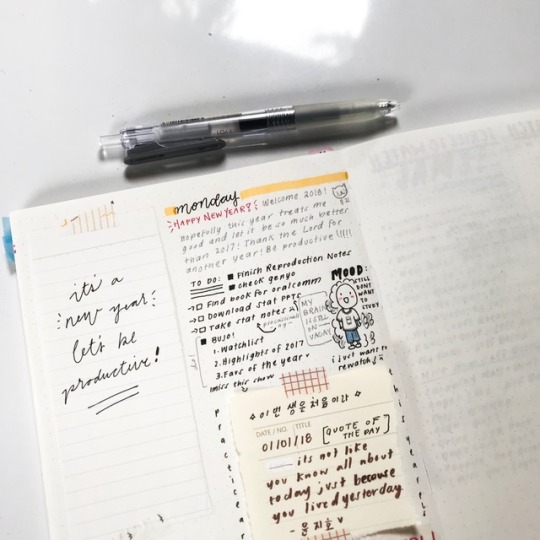 it's a
new year,
let's be
productive!
monday
HAPPY NEW YEAR!! Welcome 2018!
Hopefully this year treats me
good and let it be so much better
than 2017! Thank the Lord for
another year! Be productive!!!!!
TO DO: Finish Reproduction Notes
check genyo
Find book for oralcomm
Download stat PPTs
Take stat notes
BUJO!
1. Watchlist
2. Highlights of 2017
3. Favs of the year
imiss this show
MY
BRAIN
IS STILL
ON
VACAY
MOOD:
STILL
DONT
WANT
TO
STUDY
i just want to
rewatch
이번 생은 처음이라
DATE / NO. TITLE
01/01/18 [QUOTE OF THE DAY]
its not like
you know all about
today just because
you lived yesterday
- 윤지호